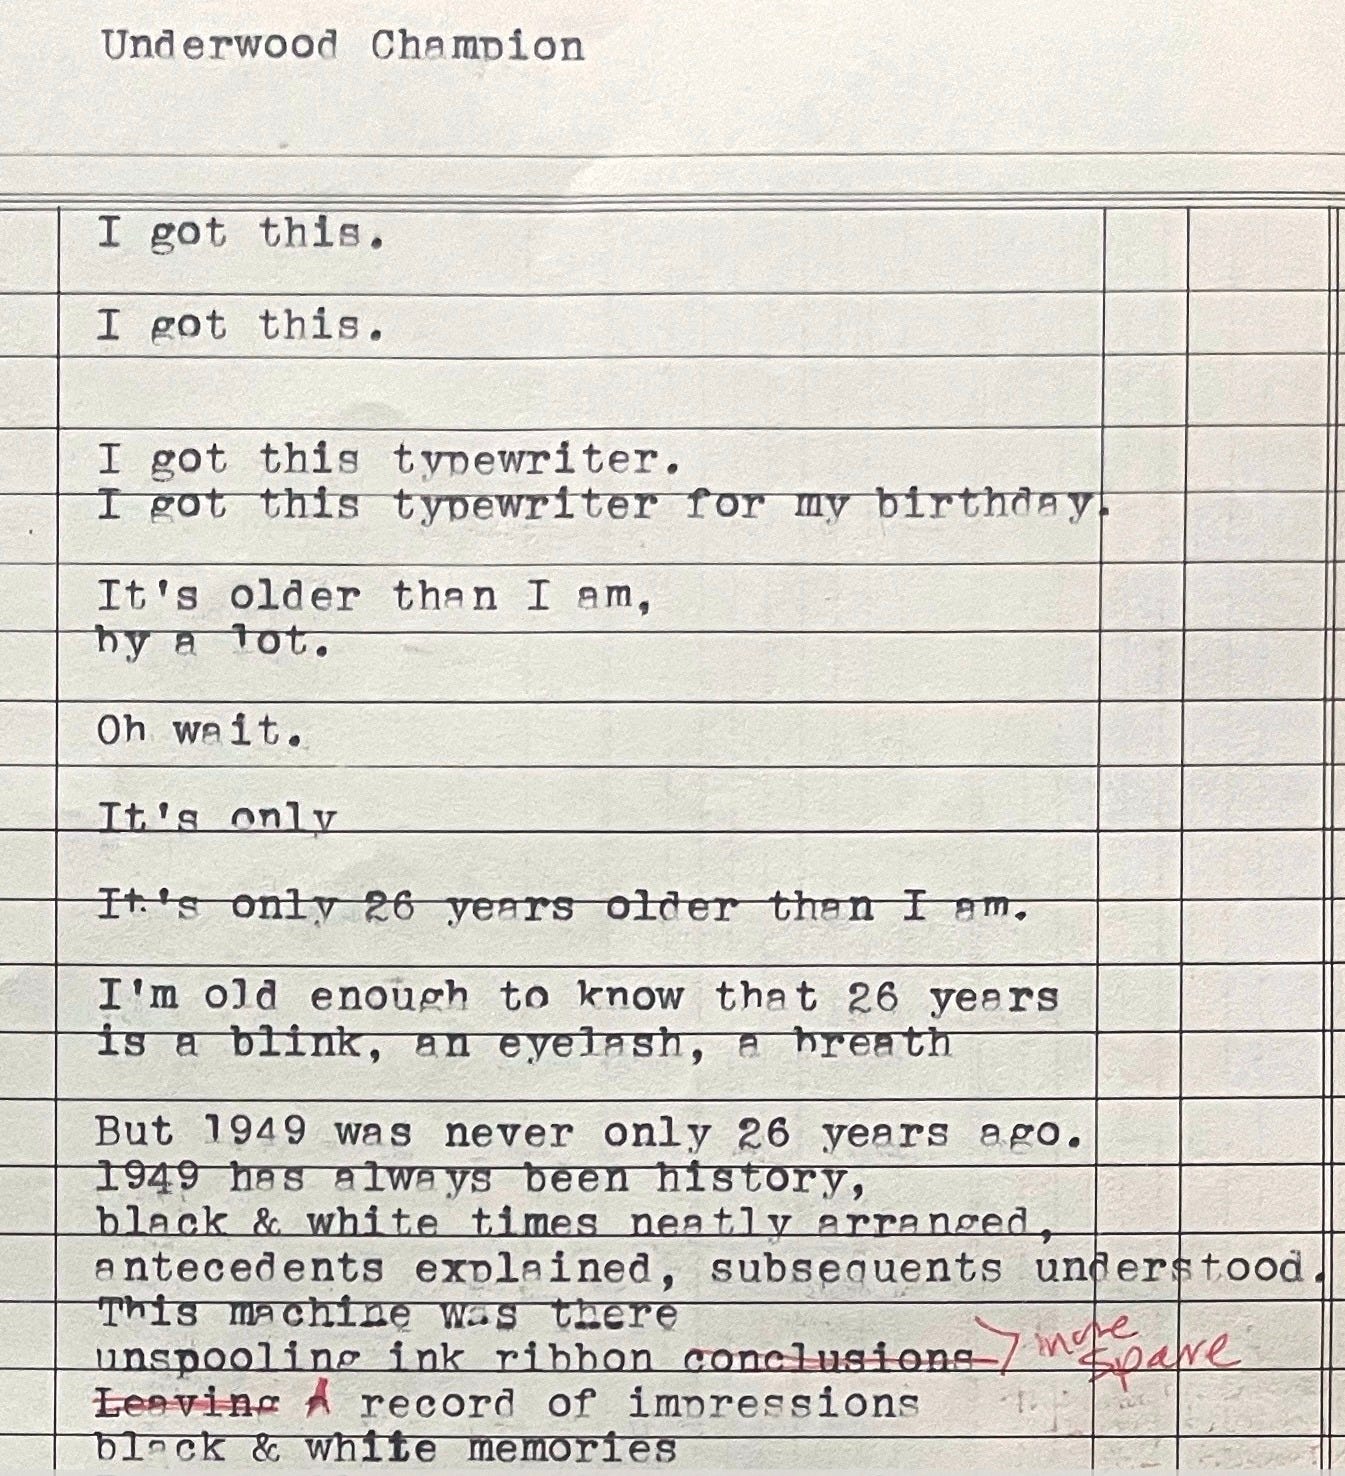 Underwood Champion
I got this.
I got this.
I got this typewriter.
I got this typewriter for my birthday.
It's older than I am,
by a lot.
Oh wait.
It's only
It's only 26 years older than I am.
I'm old enough to know that 26 years
is a blink, an eyelash, a breath
But 1949 was never only 26 years ago.
1949 has always been history,
black & white times neatly arranged,
antecedents explained, subsequents understood.
This machine was there
unspooling ink ribbon conclusions more spare
Leaving A record of impressions
black & white memories